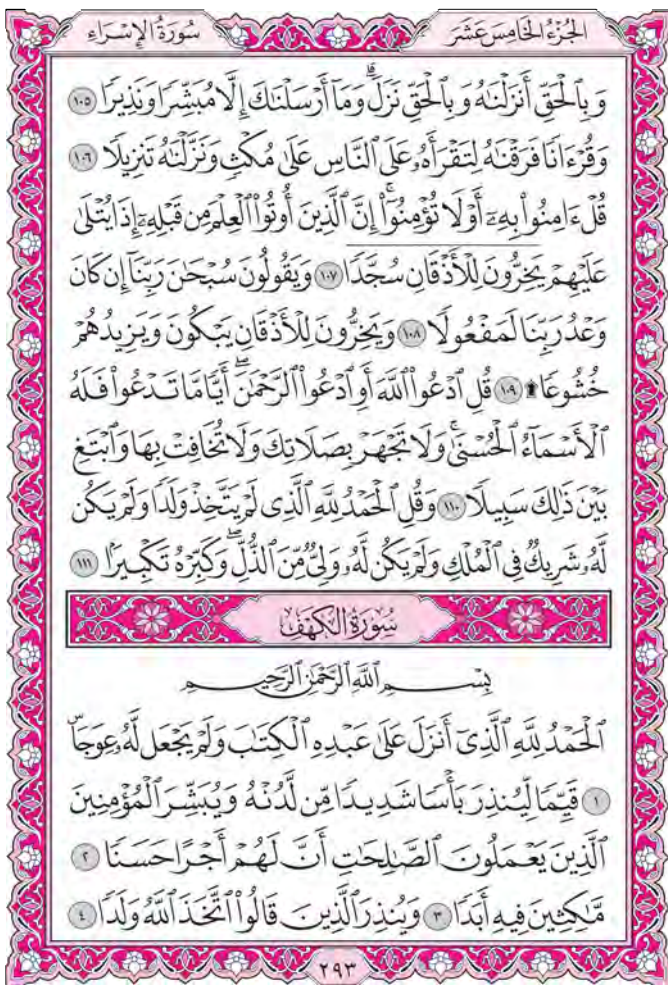 الجُزْءُ الخَامِسَ عَشَرَ سُورَةُ الإِسْرَاءِ
وَبِٱلْحَقِّ أَنزَلْنَٰهُ وَبِٱلْحَقِّ نَزَلَۗ وَمَآ أَرْسَلْنَٰكَ إِلَّا مُبَشِّرًا وَنَذِيرًا ١٠٥
وَقُرْءَانًا فَرَقْنَٰهُ لِتَقْرَأَهُۥ عَلَى ٱلنَّاسِ عَلَىٰ مُكْثٍ وَنَزَّلْنَٰهُ تَنزِيلًا ١٠٦
قُلْ ءَامِنُوا۟ بِهِۦٓ أَوْ لَا تُؤْمِنُوٓا۟ۚ إِنَّ ٱلَّذِينَ أُوتُوا۟ ٱلْعِلْمَ مِن قَبْلِهِۦٓ إِذَا يُتْلَىٰ
عَلَيْهِمْ يَخِرُّونَ لِلْأَذْقَانِ سُجَّدًا ١٠٧ وَيَقُولُونَ سُبْحَٰنَ رَبِّنَآ إِن كَانَ
وَعْدُ رَبِّنَا لَمَفْعُولًا ١٠٨ وَيَخِرُّونَ لِلْأَذْقَانِ يَبْكُونَ وَيَزِيدُهُمْ
خُشُوعًا ۩ ١٠٩ قُلِ ٱدْعُوا۟ ٱللَّهَ أَوِ ٱدْعُوا۟ ٱلرَّحْمَٰنَۖ أَيًّا مَّا تَدْعُوا۟ فَلَهُ
ٱلْأَسْمَآءُ ٱلْحُسْنَىٰۚ وَلَا تَجْهَرْ بِصَلَاتِكَ وَلَا تُخَافِتْ بِهَا وَٱبْتَغِ
بَيْنَ ذَٰلِكَ سَبِيلًا ١١٠ وَقُلِ ٱلْحَمْدُ لِلَّهِ ٱلَّذِى لَمْ يَتَّخِذْ وَلَدًا وَلَمْ يَكُن
لَّهُۥ شَرِيكٌ فِى ٱلْمُلْكِ وَلَمْ يَكُن لَّهُۥ وَلِىٌّ مِّنَ ٱلذُّلِّۖ وَكَبِّرْهُ تَكْبِيرًۢا ١١١
سُورَةُ الكَهْفِ
بِسْمِ ٱللَّهِ ٱلرَّحْمَٰنِ ٱلرَّحِيمِ
ٱلْحَمْدُ لِلَّهِ ٱلَّذِىٓ أَنزَلَ عَلَىٰ عَبْدِهِ ٱلْكِتَٰبَ وَلَمْ يَجْعَل لَّهُۥ عِوَجَاۜ
١ قَيِّمًا لِّيُنذِرَ بَأْسًا شَدِيدًا مِّن لَّدُنْهُ وَيُبَشِّرَ ٱلْمُؤْمِنِينَ
ٱلَّذِينَ يَعْمَلُونَ ٱلصَّٰلِحَٰتِ أَنَّ لَهُمْ أَجْرًا حَسَنًا ٢
مَّٰكِثِينَ فِيهِ أَبَدًا ٣ وَيُنذِرَ ٱلَّذِينَ قَالُوا۟ ٱتَّخَذَ ٱللَّهُ وَلَدًا ٤
٢٩٣